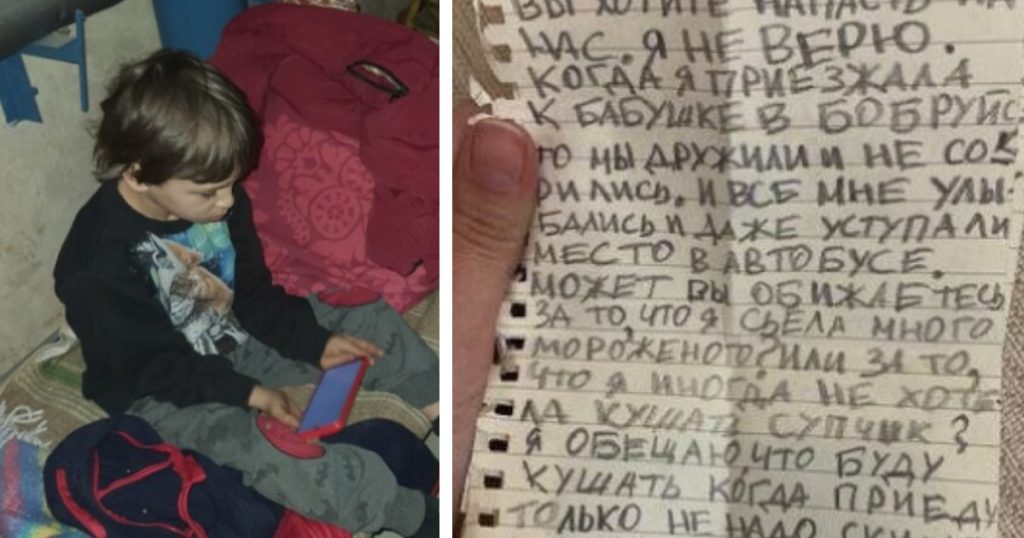 ВЫ ХОТИТЕ НАПАСТЬ НА
НАС. Я НЕ ВЕРЮ.
КОГДА Я ПРИЕЗЖАЛА
К БАБУШКЕ В БОБРУЙС
ТО МЫ ДРУЖИЛИ И НЕ СО
РИЛИСЬ. И ВСЕ МНЕ УЛЫ-
БАЛИСЬ И ДАЖЕ УСТУПАЛИ
МЕСТО В АВТОБУСЕ.
МОЖЕТ ВЫ ОБИЖАЕТЕСЬ
ЗА ТО, ЧТО Я СЬЕЛА МНОГО
МОРОЖЕНОГО? ИЛИ ЗА ТО,
ЧТО Я ИНОГДА НЕ ХОТЕ
ЛА КУШАТЬ СУПЧИК?
Я ОБЕЩАЮ, ЧТО БУДУ
КУШАТЬ КОГДА ПРИЕДУ
ТОЛЬКО НЕ НАДО